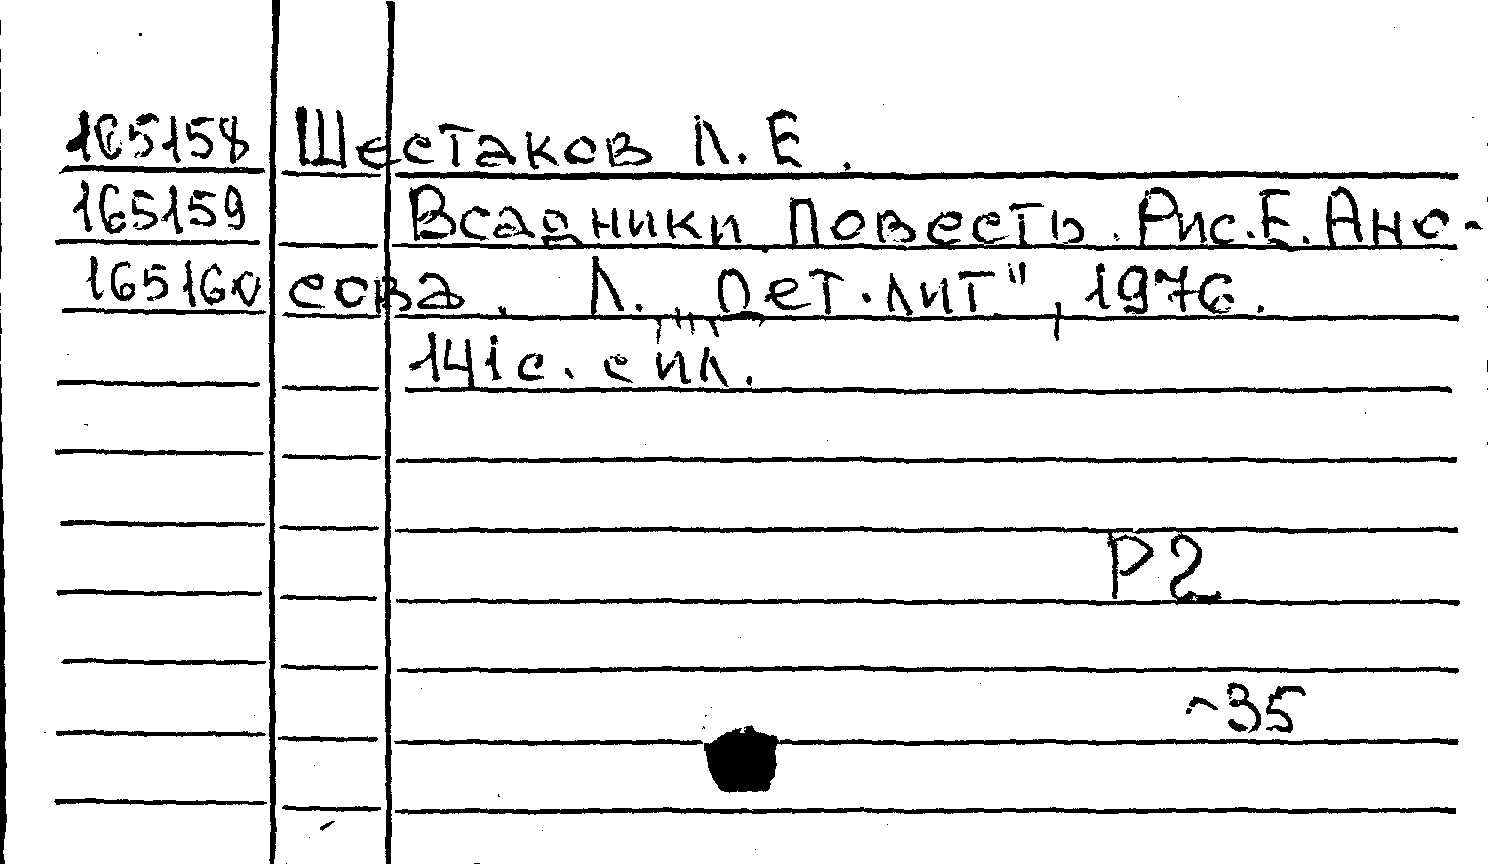 165158 Шестаков Л. Е.
165159 Всадники. Повесть. Рис. Е. Ано-
165160 сова. Л. „Дет. лит", 1976.
141 с. с ил.
Р2
~35